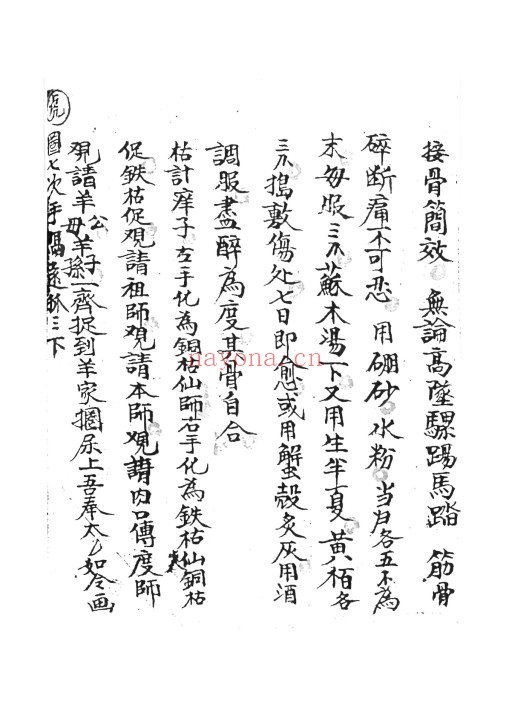 接骨簡效 無論高墜騾踢馬踏 筋骨
碎断痛不可忍 用硼砂水粉当归各五分為
末每服三分蘇木湯下又用生半夏黄栢各
三分搗敷傷处七日即愈或用蟹殼炙灰用酒
調服盡醉為度其骨自合
枯計痒子左手化為銅枯仙師右手化為鉄枯仙銅枯
促鉄枯促观請祖師观請本師观請内口傳度師
观請羊公羊母羊子羊孫一齊捉到羊家圈尿上吾奉太么如令画
圖七次手
三下
nayona.cn